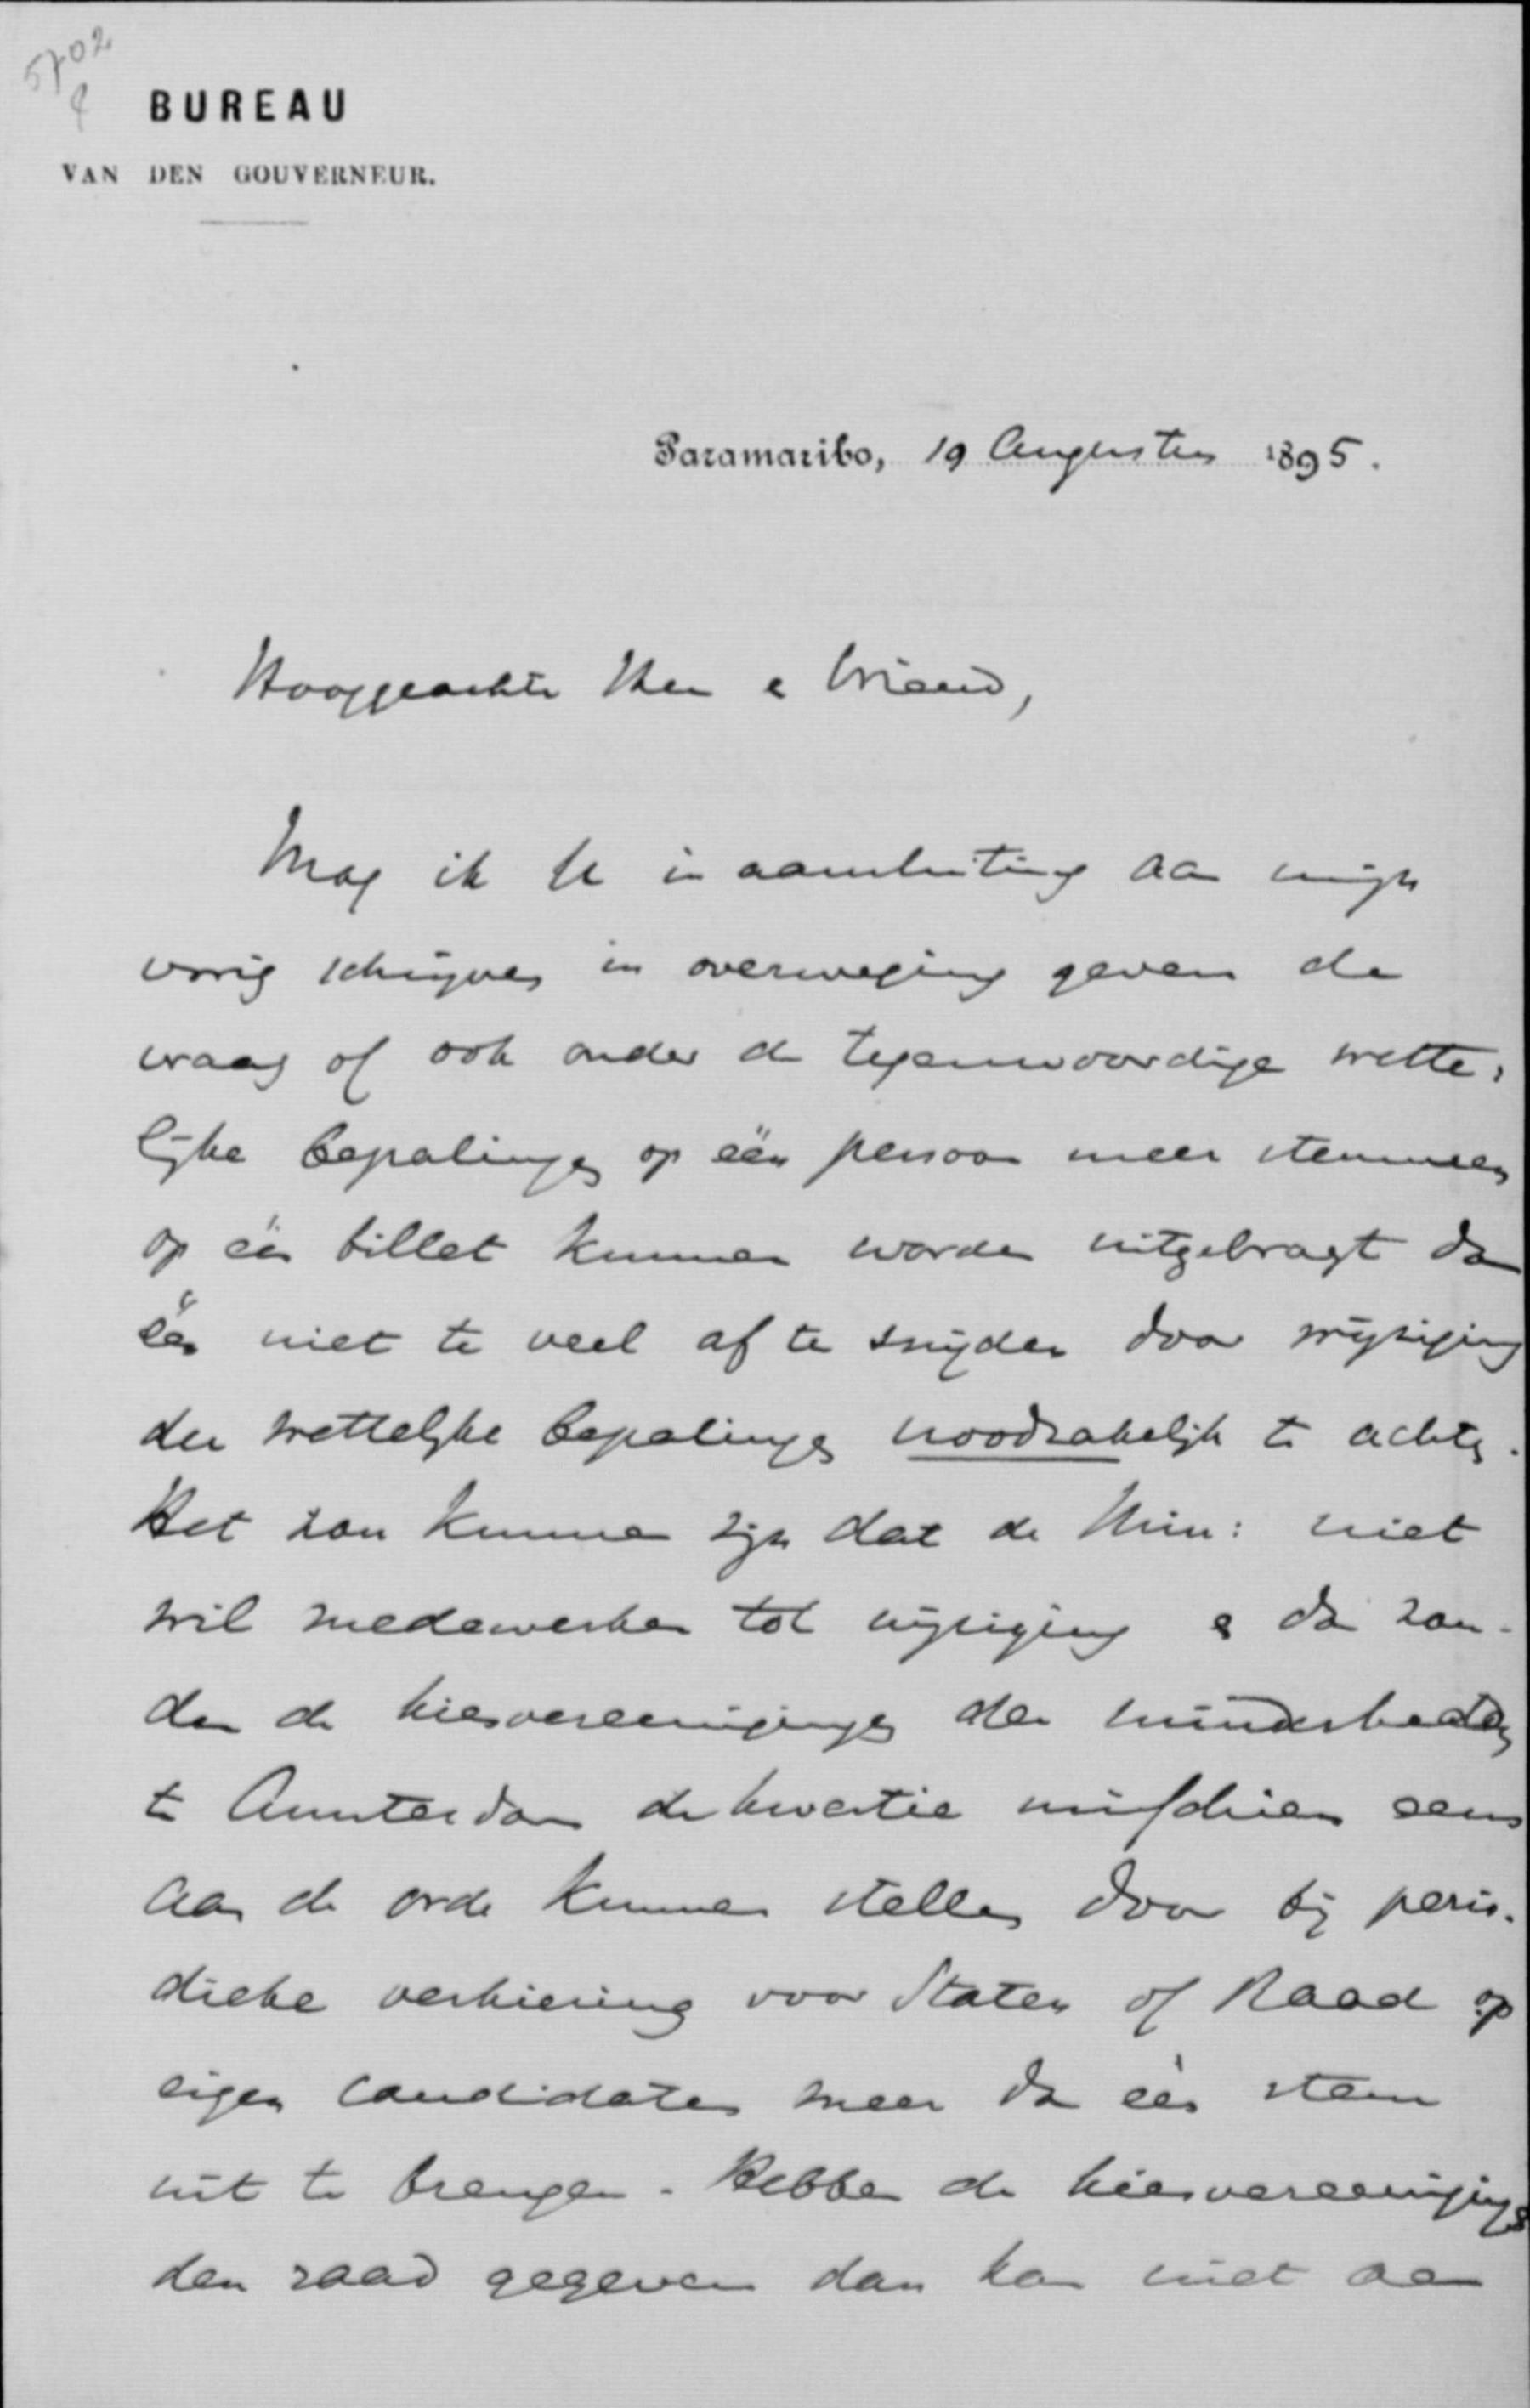 5702
BUREAU
VAN DEN GOUVERNEUR.
Paramaribo, 19 Augustus 1895.
Hooggeachte Heer en Vriend,
Mag ik U in aansluiting aan mijn
vorig schrijven in overweging geven de
vraag of ook onder de tegenwoordige wette-
lijke bepalingen op één persoon meer stemmen
op één billet kunnen worden uitgebragt dan
één niet te veel af te snijden door wijziging
der wettelijke bepalingen noodzakelijk te achten.
Het zou kunnen zijn dat de Min: niet
wil medewerken tot wijziging en dan zou-
den de kiesvereenigingen der minderheden
te Amsterdam de kwestie misschien eens
aan de orde kunnen stellen door bij perio-
dieke verkiezing voor Staten of Raad op
eigen candidaten meer dan één stem
uit te brengen. Hebben de kiesvereenigingen
den raad gegeven dan kan niet aan